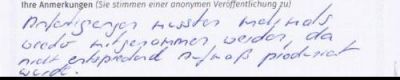 Ihre Anmerkungen (Sie stimmen einer anonymen Veröffentlichung zu)
Anfertigungen mussten mehrmals
wieder mitgenommen werden, da
nicht entsprechend Aufmaß produziert
wurde.